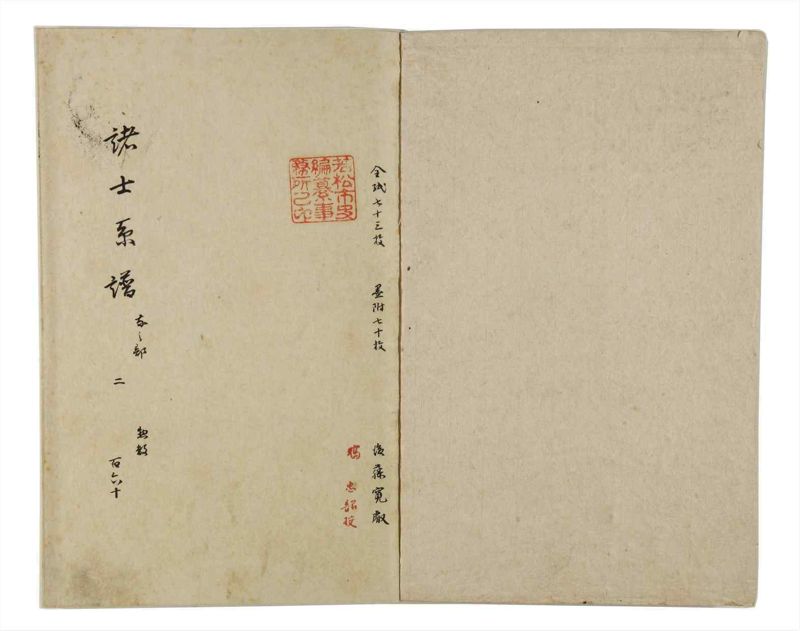 全紙七十三枚　墨附七十枚　後藤寛
若松市史
編纂事
務所之印
諸士系譜
之部　二
惣数　百六十